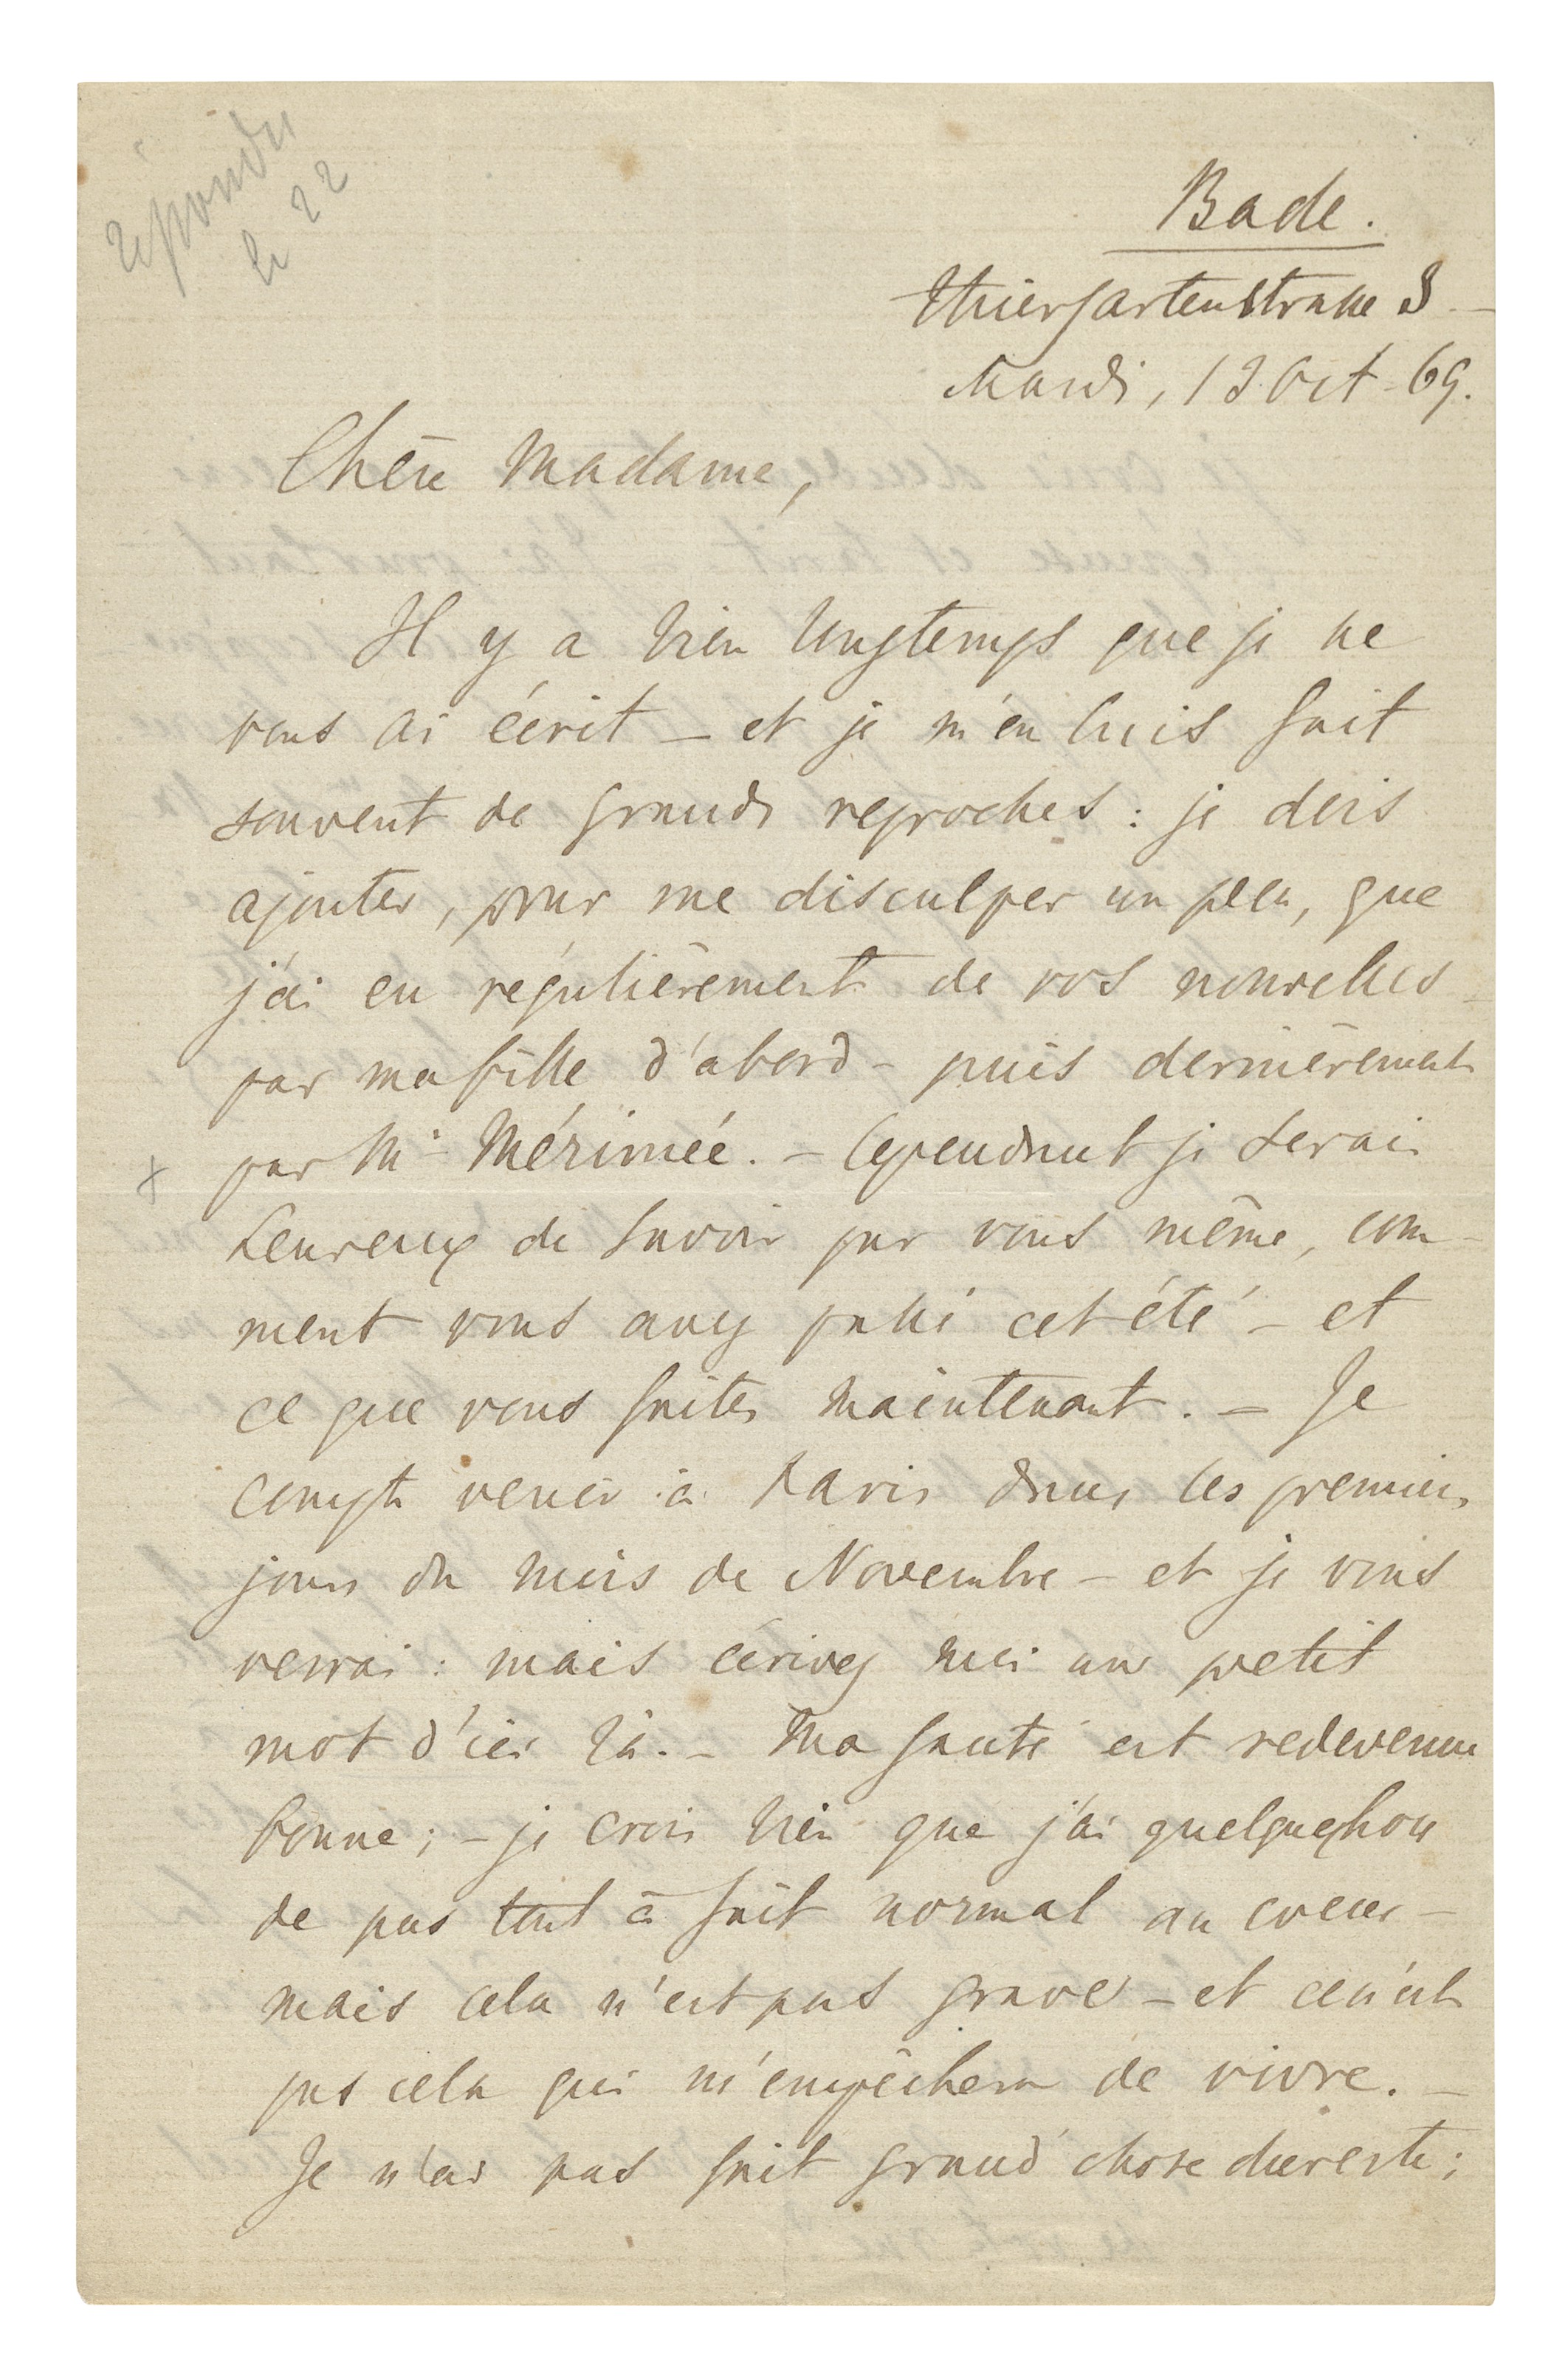 répondu
le 22
Bade.
Thiergartenstrasse 3
Mardi, 19 Oct. 69.
Chère Madame,
Il y a bien longtemps que je ne
vous ai écrit – et je m'en suis fait
souvent de grands reproches : je dois
ajouter, pour me disculper un peu, que
j'ai eu régulièrement de vos nouvelles –
par ma fille d'abord – puis dernièrement
par Mr Mérimée. – Cependant je serais
heureux de savoir par vous même, com-
ment vous avez passé cet été – et
ce que vous faites maintenant. – Je
compte venir à Paris dans les premiers
jours du mois de Novembre – et je vous
verrai : mais écrivez moi un petit
mot d'ici là. – Ma santé est redevenue
bonne ; – je crois bien que j'ai quelquechose
de pas tout à fait normal au coeur –
mais cela n'est pas grave – et ce n'est
pas cela qui m'empêchera de vivre. –
Je n'ai pas fait grand'chose du reste ;